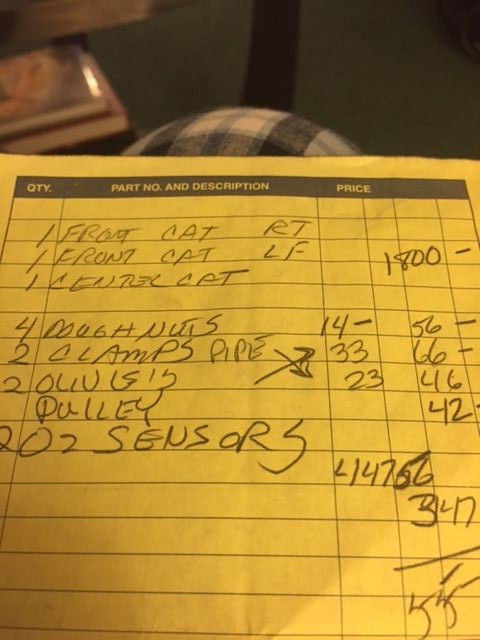 QTY. PART NO. AND DESCRIPTION PRICE
1 FRONT CAT RT
1 FRONT CAT LF 1800 -
1 CENTER CAT
4 DOUGHNUTS 14 - 56 -
2 CLAMPS PIPE 33 66 -
2 23 46
PULLEY 42 -
2 O2 SENSORS
347